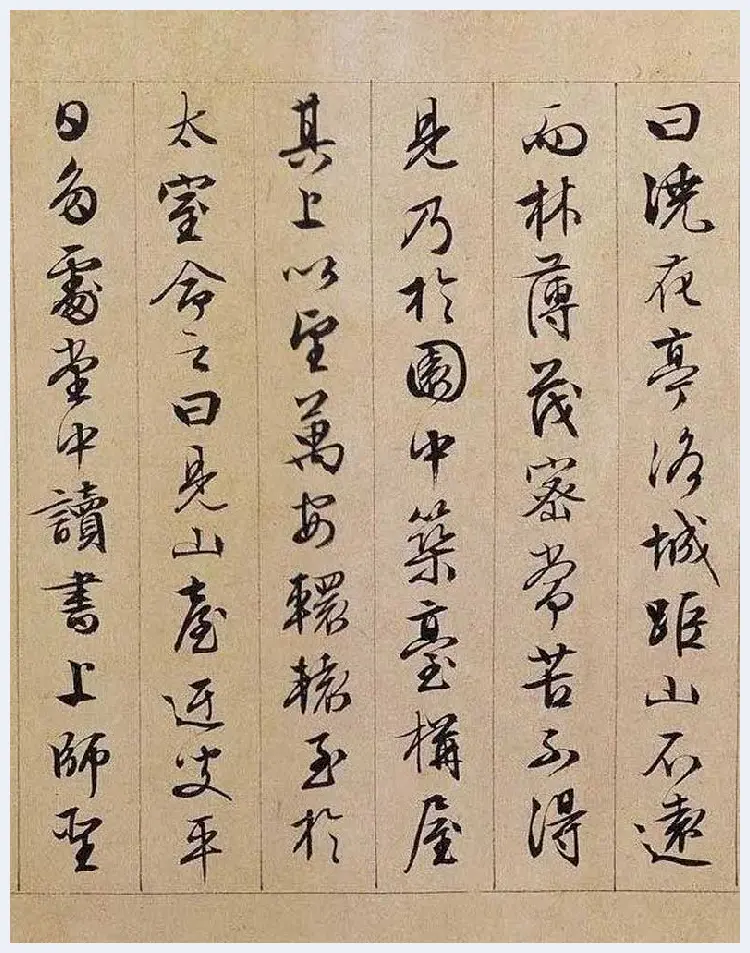 曰澆花亭洛城距山不遠
而林薄茂密常苦不得
見乃於園中築臺構屋
其上以望萬安轘轅至於
太室命之曰見山臺迃叟平
日多處堂中讀書上師聖